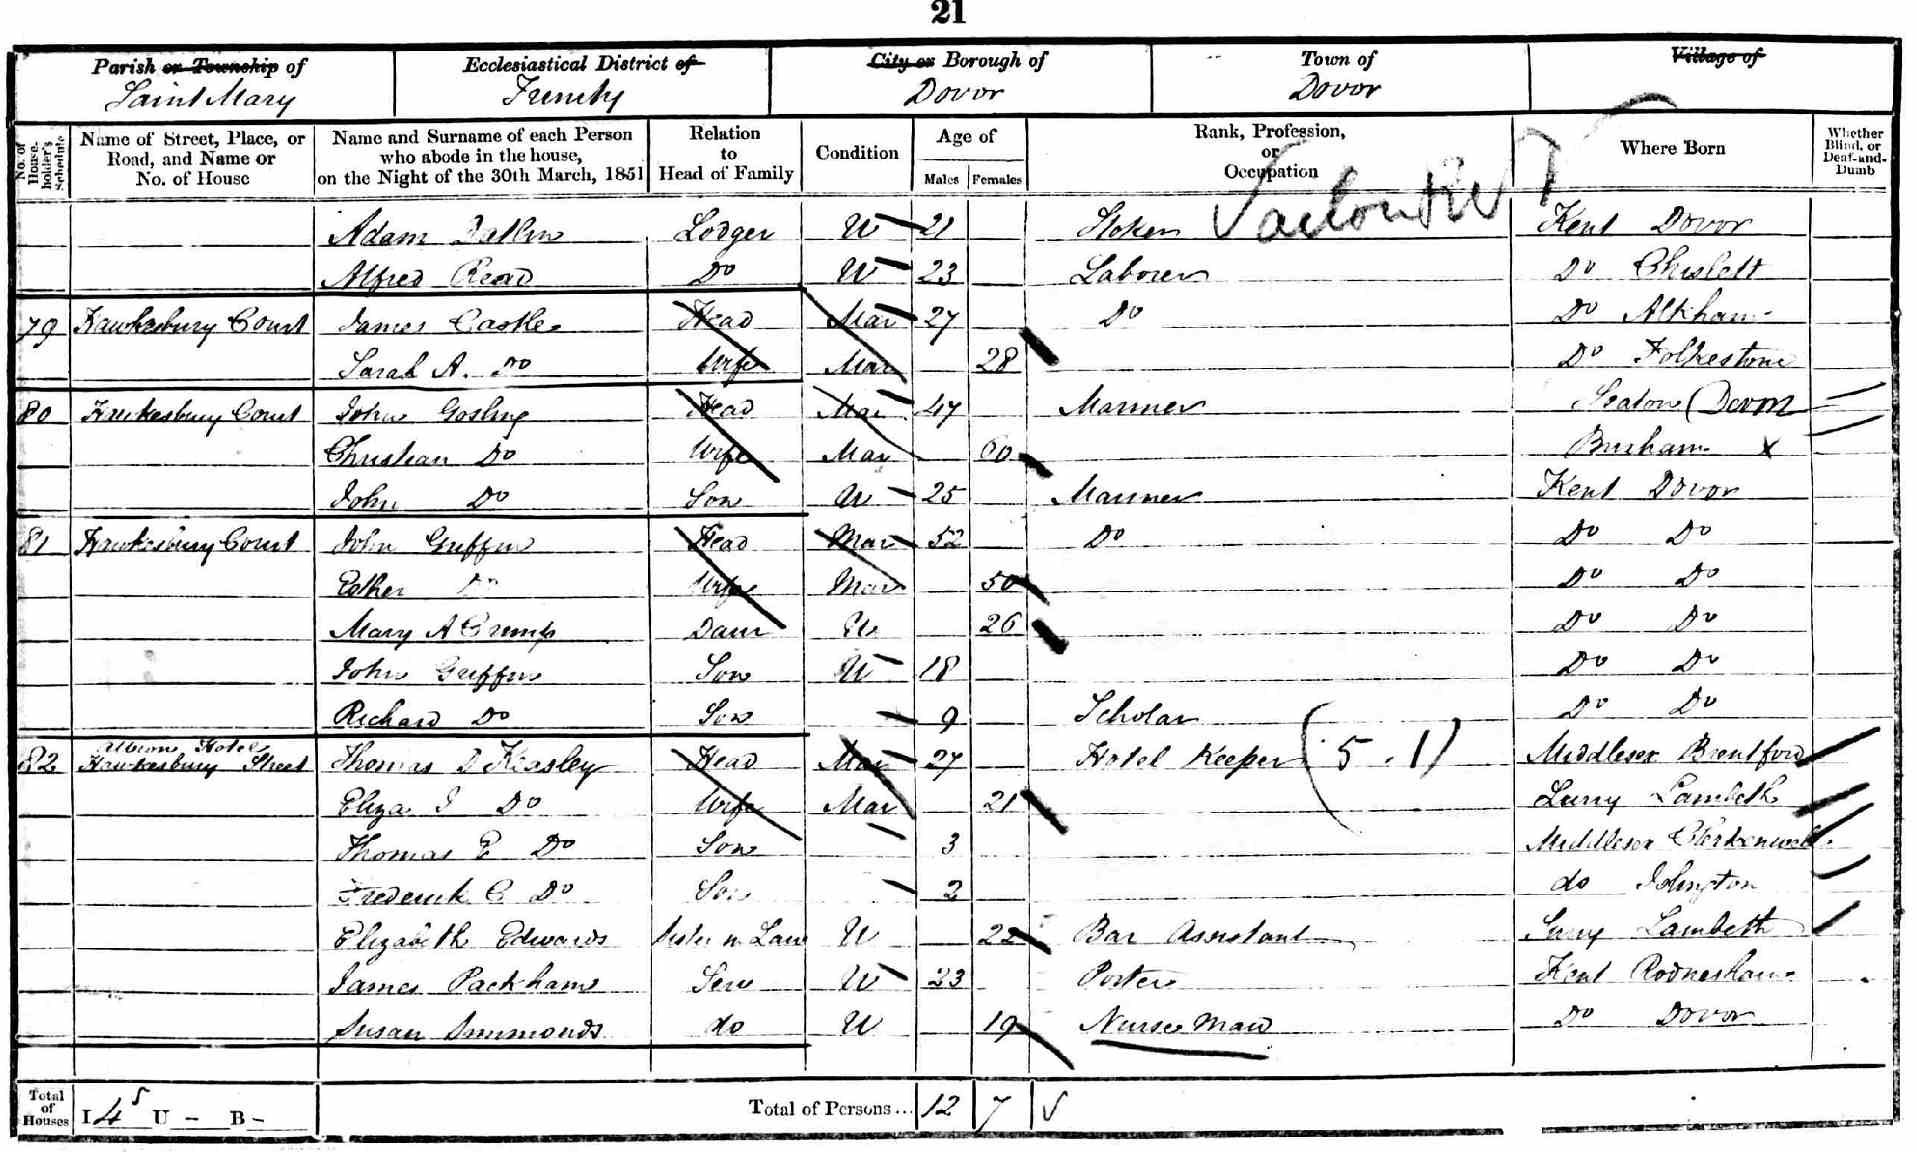 21
Parish or Township of
Saint Mary
Ecclesiastical District of
Trinity
City or Borough of
Dovor
Town of
Dovor
Village of
No. of House-holder's Schedule
Name of Street, Place, or Road, and Name or No. of House
Name and Surname of each Person who abode in the house, on the Night of the 30th March, 1851
Relation to Head of Family
Condition
Age of
Males
Females
Rank, Profession, or Occupation
Where Born
Whether Blind, or Deaf-and-Dumb
Adam Lodger U 21 Stoker Kent Dovor
Alfred Read Do U 23 Laborer Do Chislett
79 Hawkesbury Court James Castle Head Mar 27 Do Do Alkham
Sarah A. Do Wife Mar 28 Do Folkestone
80 Hawkesbury Court John Gosling Head Mar 47 Mariner Seaton (Devon
Christian Do Wife Mar 60 x
John Do Son U 25 Mariner Kent Dovor
81 Hawkesbury Court John Griffin Head Mar 52 Do Do Do
Esther Do Wife Mar 50 Do Do
Mary A Crump Daur U 26 Do Do
John Griffin Son U 18 Do Do
Richard Do Son 9 Scholar Do Do
82 Albion Hotel Hawkesbury Street Thomas D Keasley Head Mar 27 Hotel Keeper (5.1) Middlesex Brentford
Eliza J Do Wife Mar 21 Surry Lambeth
Thomas E Do Son 3 Middlesex Clerkenwell
Frederick C Do Son 2 do Islington
Elizabeth Edwards Sister in Law U 22 Bar Assistant Surry Lambeth
James Packham Serv U 23 Porter Kent
Susan Simmonds do U 19 Nurse Maid Do Dovor
Total of Houses I 4 5 U - B -
Total of Persons... 12 7